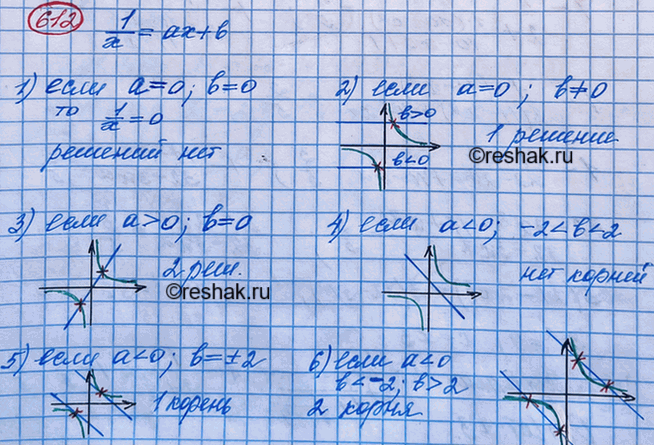 612
1/x = ax+b
1) если a=0; b=0
то 1/x = 0
решений нет
2) если a=0; b≠0
b>0
b<0
1 решение
©reshak.ru
3) если a>0; b=0
2 реш.
©reshak.ru
4) если a<0; -2<b<2
нет корней
5) если a<0; b=±2
1 корень
6) если a<0
b<-2; b>2
2 корня